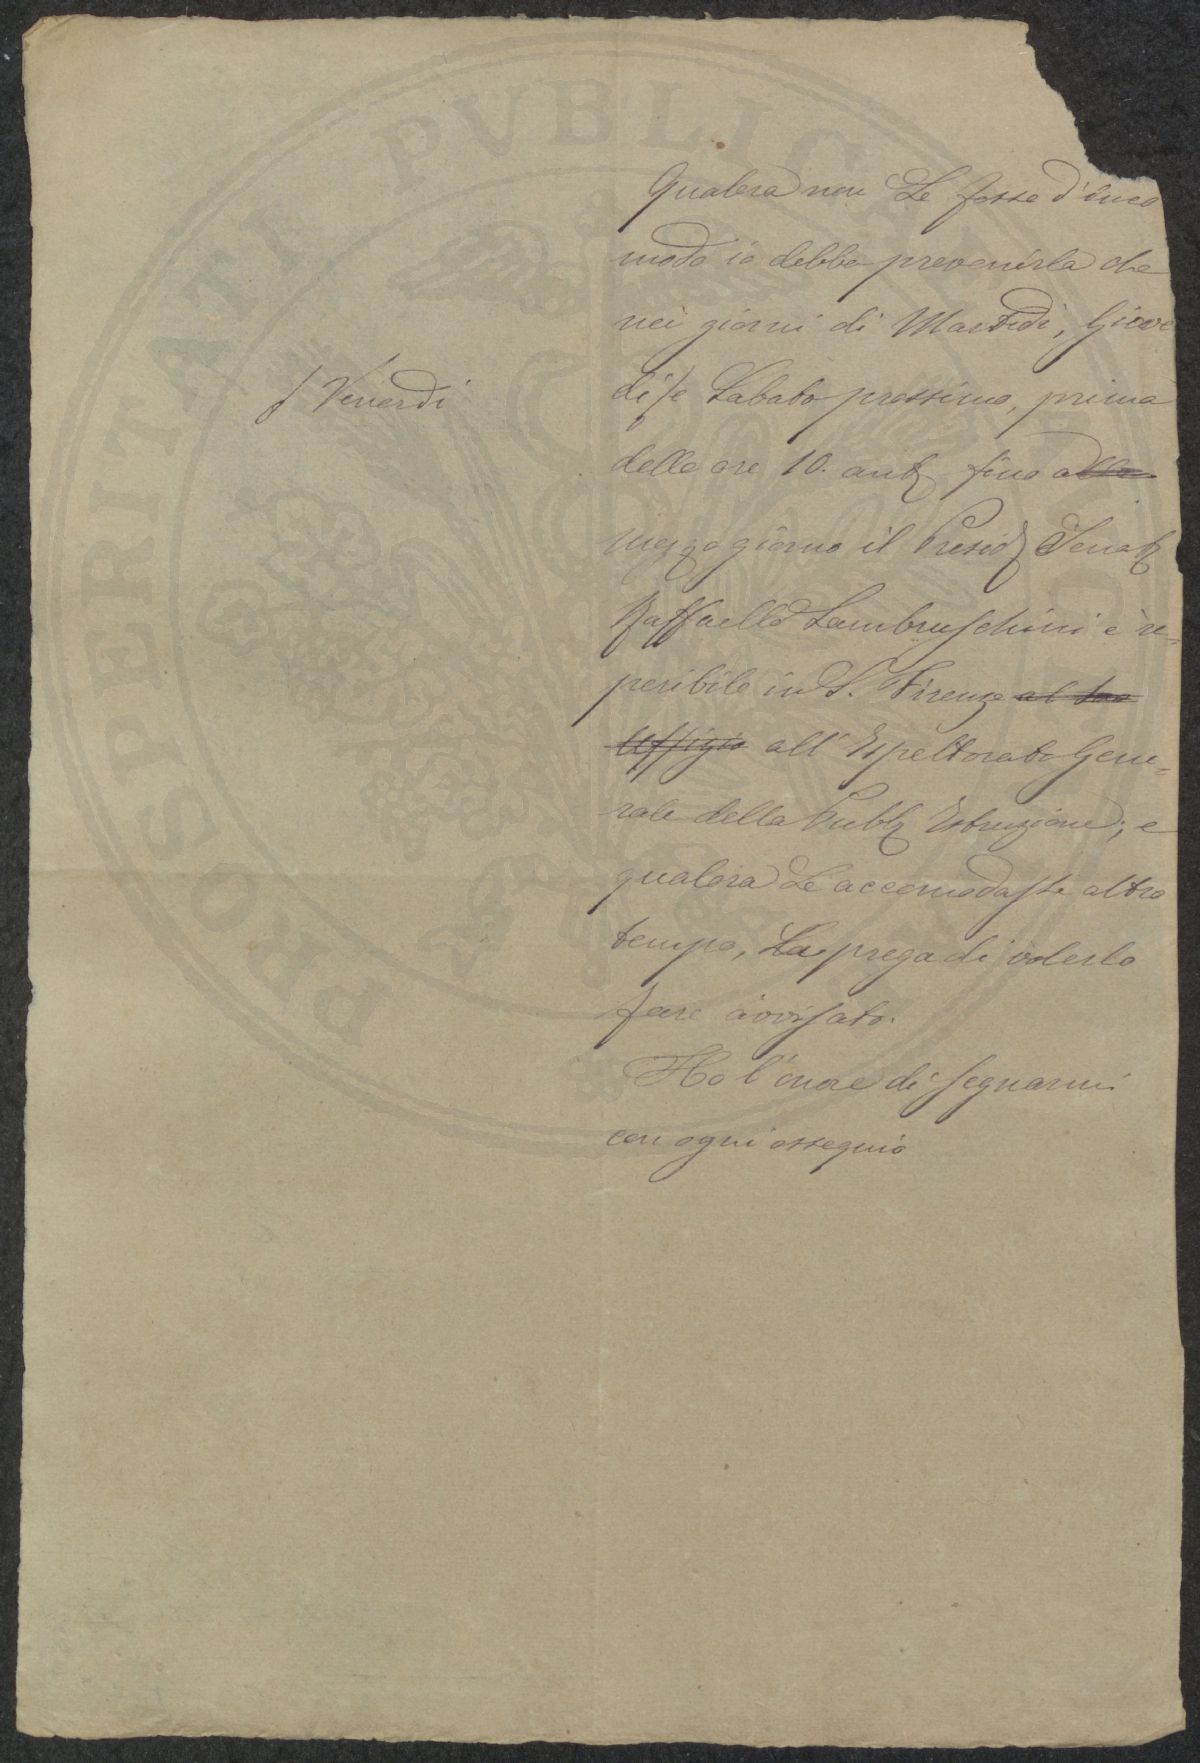 Qualora non Le fosse d'inco
modo io debbo prevenirla che
nei giorni di Martedì, Giove
dì ∫ e Sabato prossimo, prima
∫ Venerdì
delle ore 10. ant fino alle
mezzo giorno il Presid Senat
Raffaello Lambruschini è re=
peribile in S. Firenze al suo
Uffizio all'Ispettorato Gene=
rale della Pubb Istruzione; e
qualora Le accomodasse altro
tempo, La prega di volerlo
fare avvisato.
Ho l'onore di segnarmi
con ogni ossequio
PROSPERITATI PVBLICAE